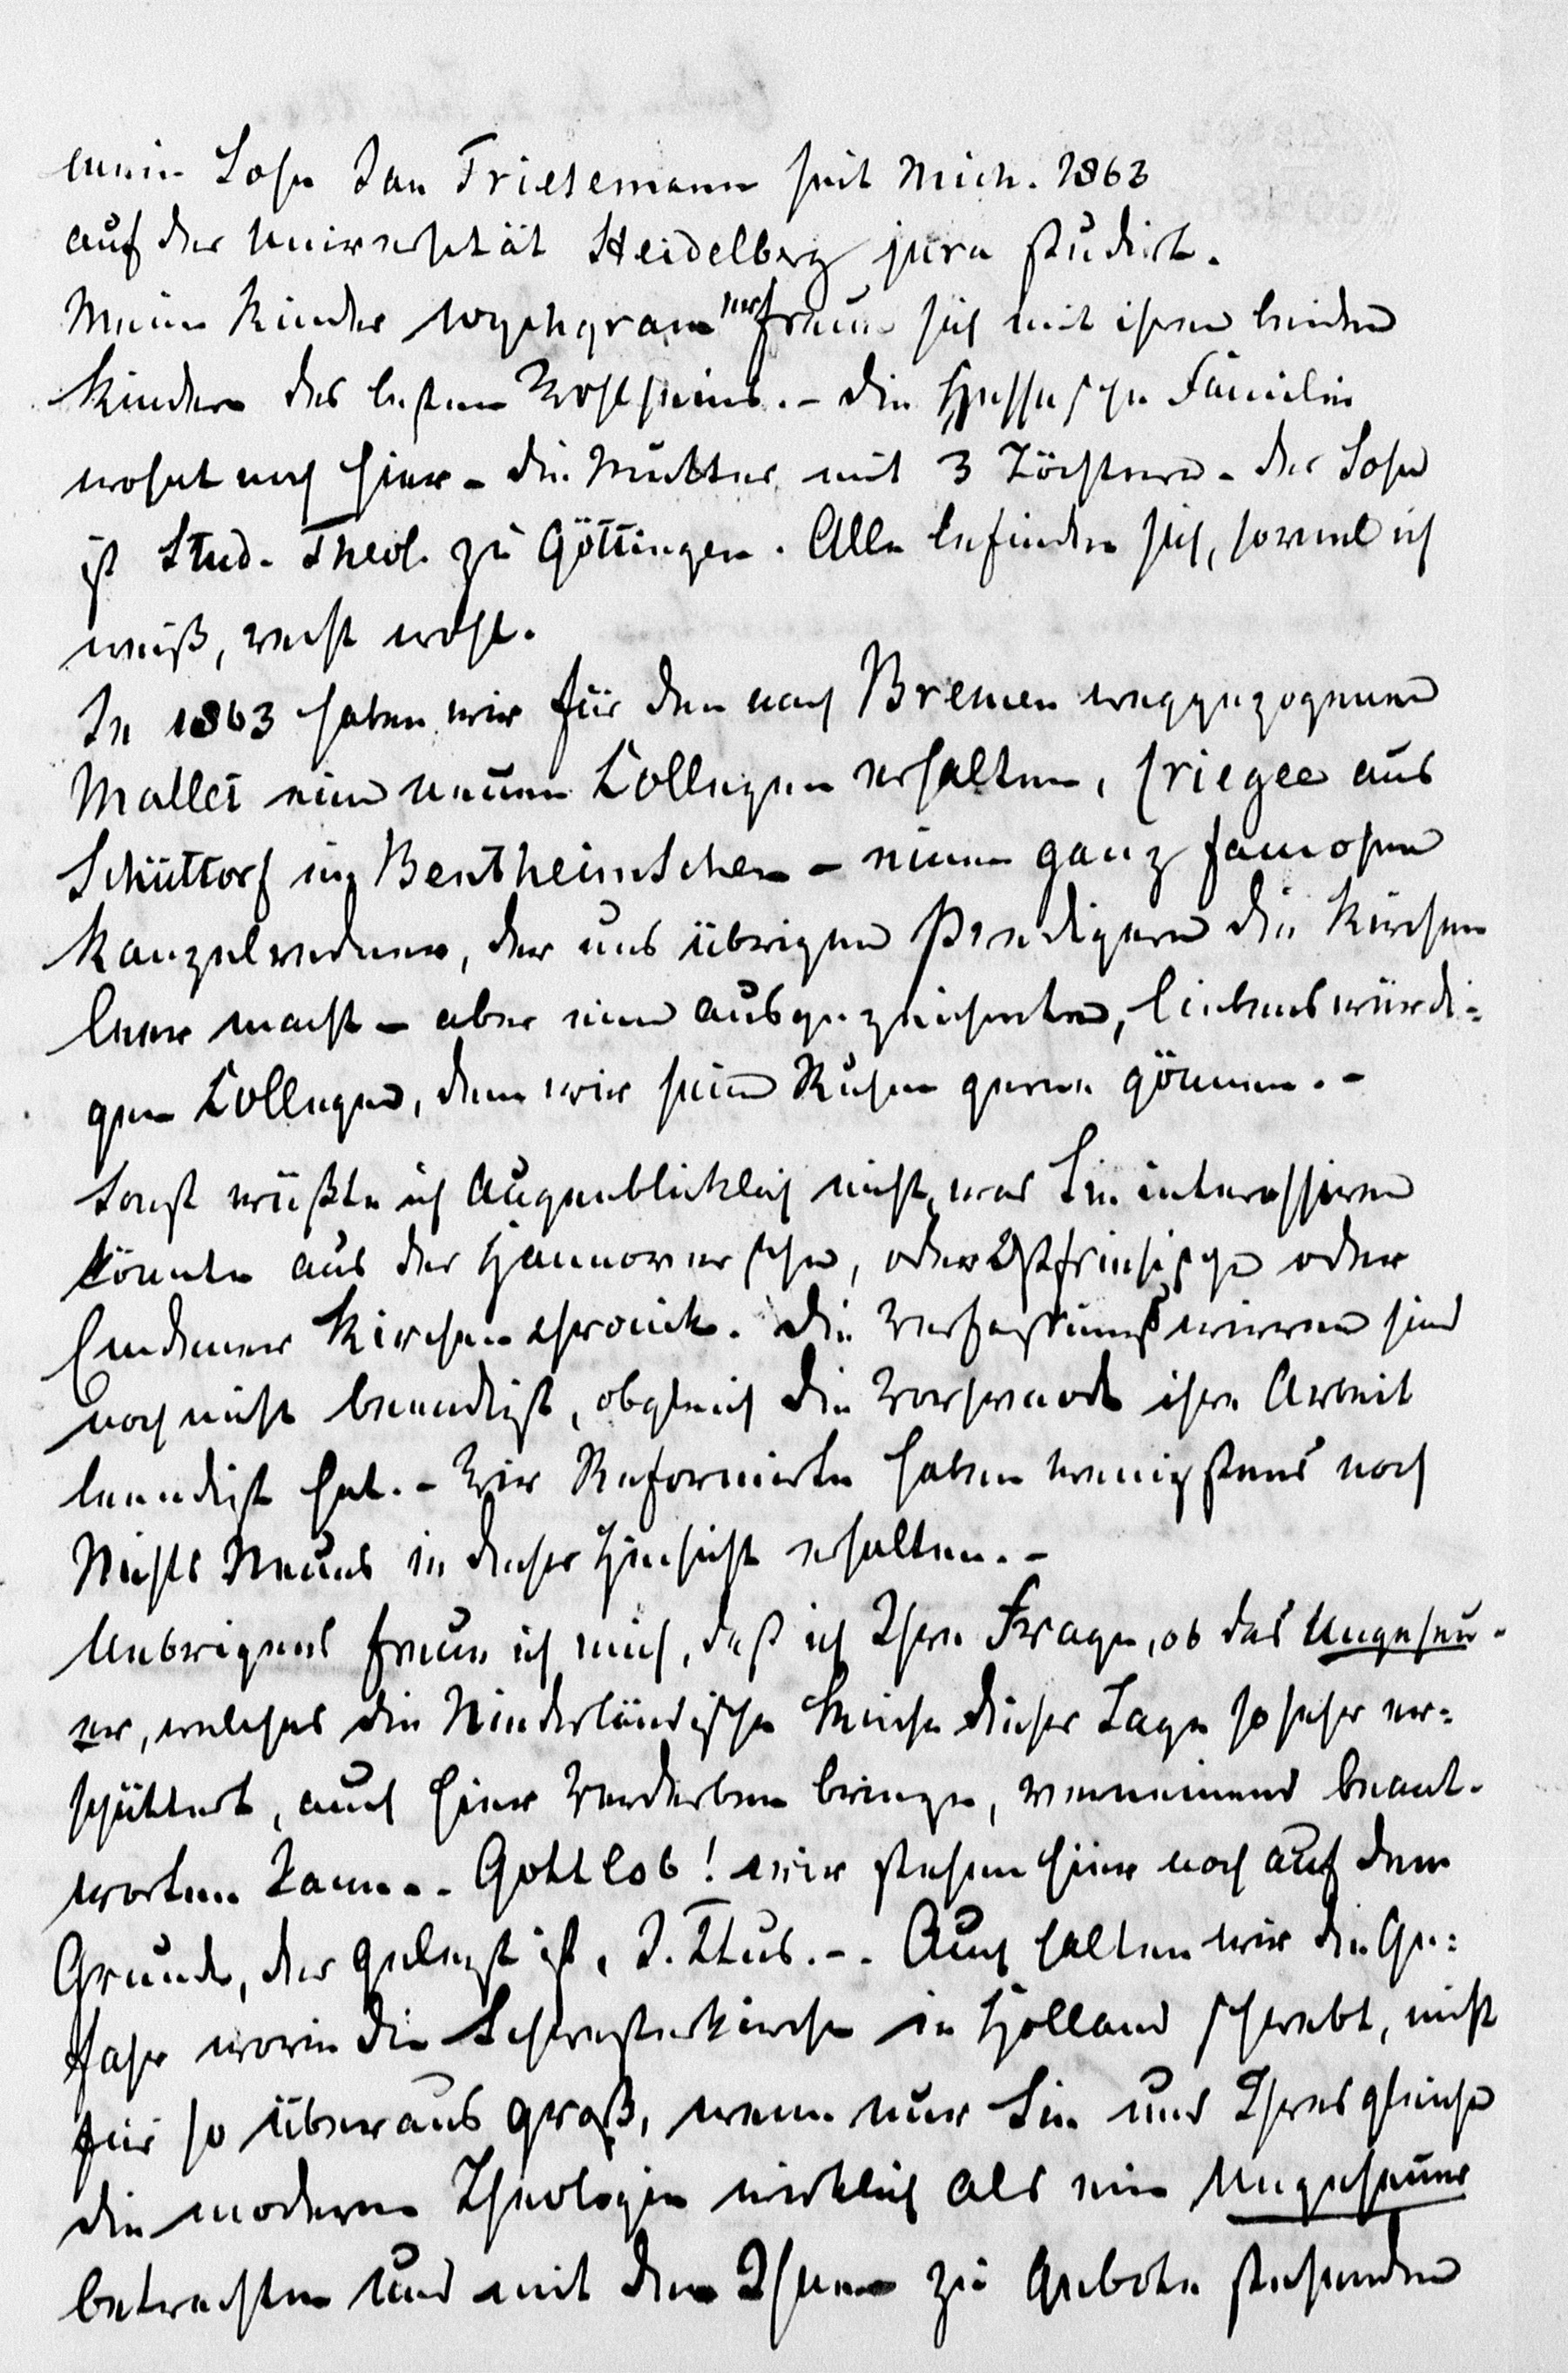 mein Sohn Jan Friesemann seit Mich. 1863
auf der Universität Heidelberg jura studirt.
Meine Kinder Wychgram erfreuen sich mit ihren beiden
Kindern des besten Wohlseins. – Die Hessesche Familie
wohnt noch hier – die Mutter mit 3 Töchtern – der Sohn
ist Stud. Theol. zu Göttingen. Alle befinden sich, soviel ich
weiß, recht wohl.
In 1863 haben wir für den nach Bremen weggezogenen
Mallet einen neuen Collegen erhalten, Criegee aus
Schüttorf im Bentheimschen – einen ganz famosen
Kanzelredner, der uns übrigen Predigern die Kirchen
leer macht – aber einen ausgezeichneten, liebenswürdi-
gen Collegen, dem wir seinen Ruhm gerne gönnen. –
Sonst wüßte ich augenblicklich nicht, was Sie interessiren
könnte aus der Hannoverschen, oder Ostfriesischen oder
Emdener Kirchenchronik. Die Verfassungswirren sind
noch nicht beendigt, obgleich die Vorsynode ihre Arbeit
beendigt hat. – Wir Reformirte haben wenigstens noch
Nichts Neues in dieser Hinsicht erhalten. –
Uebrigens freue ich mich, daß ich Ihre Frage, ob das Ungeheu-
er, welches die Niederländische Kirche dieser Tage so sehr er-
schüttert, auch hier Verderben bringe, verneinend beant-
worten kann. – Gottlob! wir stehen hier noch auf dem
Grunde, der gelegt ist, J. Xtus. –. Auch halten wir die Ge-
fahr worin die Schwesterkirche in Holland schwebt, nicht
für so überaus groß, wenn nur Sie und Ihresgleichen
die moderne Theologie wirklich als ein Ungeheuer
betrachten und mit den Ihnen zu Gebote stehenden